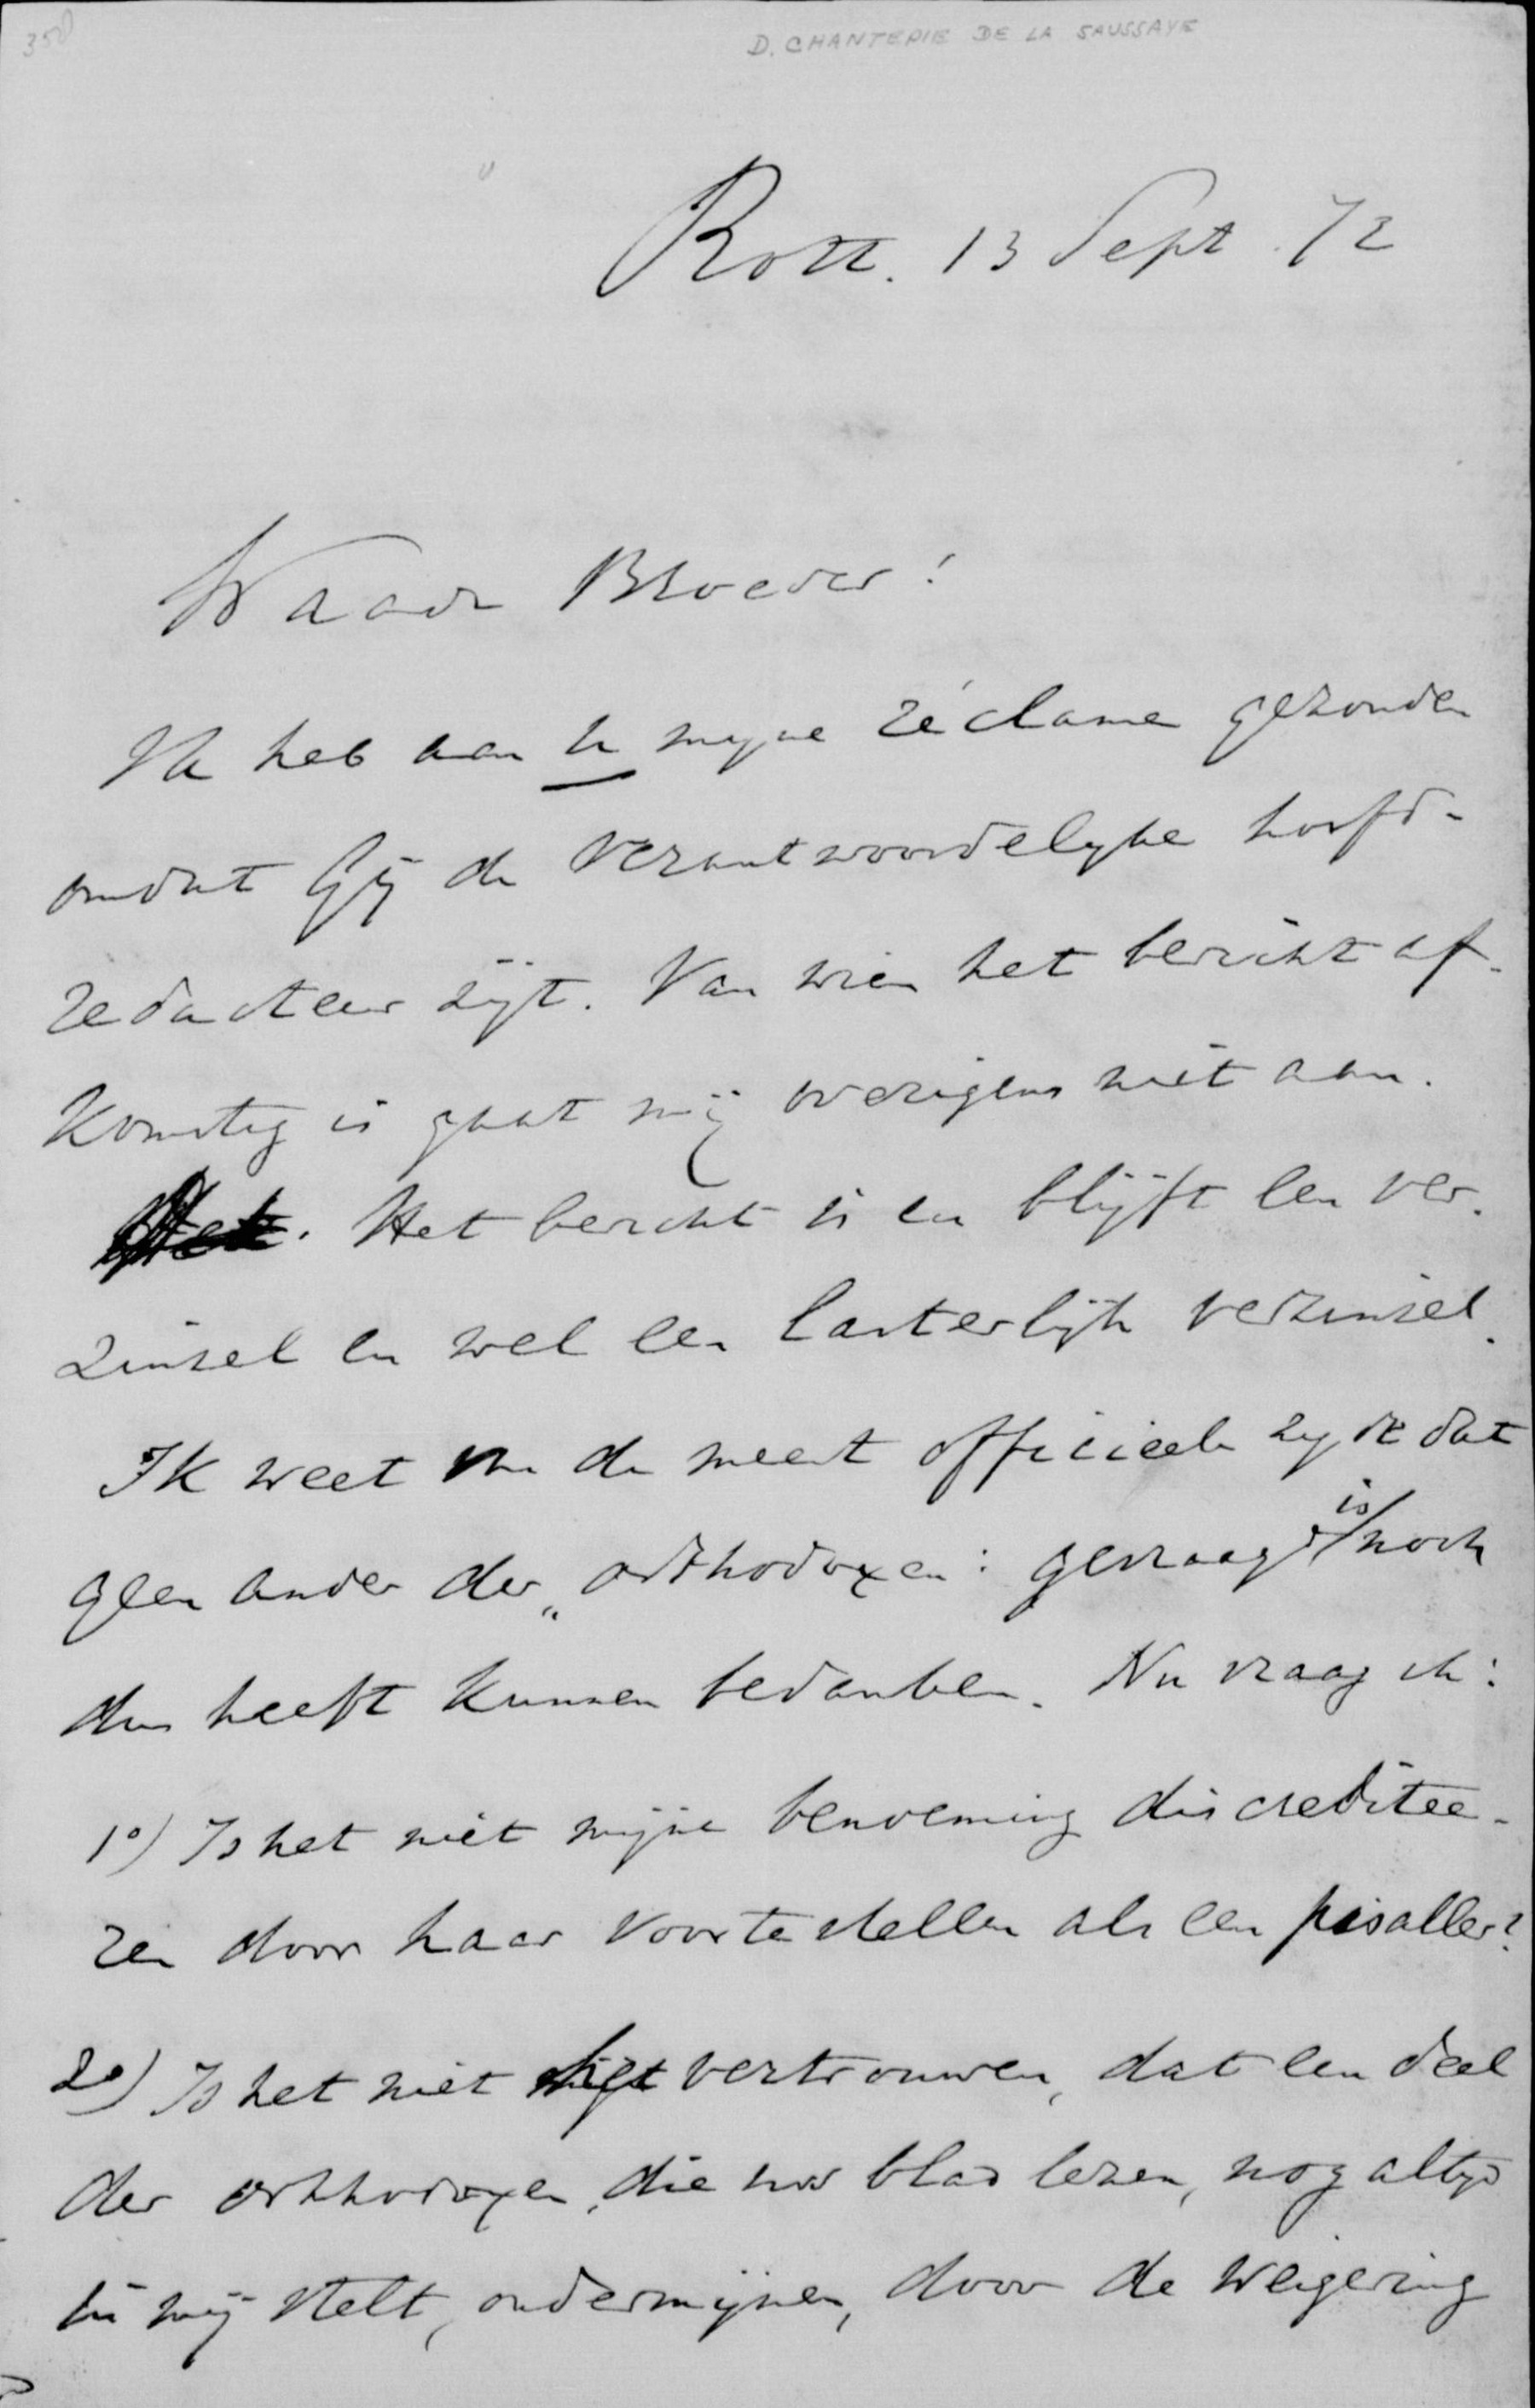 350
D. CHANTEPIE DE LA SAUSSAYE
Rott. 13 Sept. 72
Waarde Broeder!
Ik heb aan U mijne réclame gezonden
omdat Gij de verantwoordelijke hoofd-
redacteur zijt. Van wien het bericht af-
komstig is gaat mij overigens niet aan.
Het. Het bericht is en blijft een ver-
zinsel en wel een lasterlijk verzinsel.
Ik weet van de meest officieele zijde dat
geen ander der „orthodoxen" gevraagd is noch
dus heeft kunnen bedanken. Nu vraag ik:
1º) Is het niet mijne benoeming discreditee-
ren door haar voortestellen als een pis aller?
2º) Is het niet het vertrouwen, dat een deel
der orthodoxen, die uw blad lezen, nog altijd
in mij stelt, ondermijnen, door de weigering